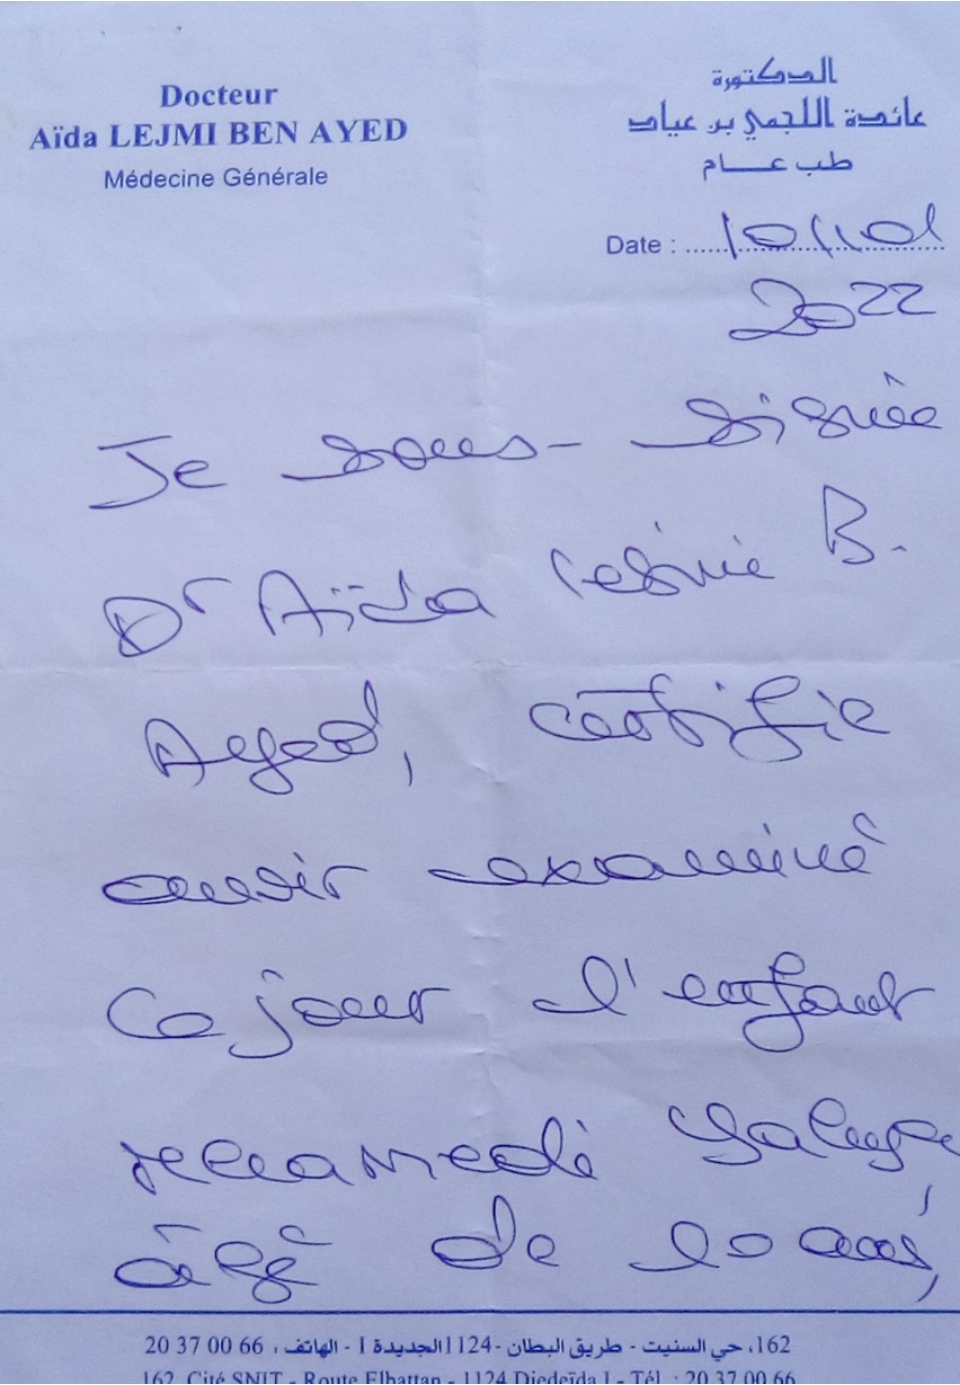 Docteur
Aïda LEJMI BEN AYED
Médecine Générale
الدكتورة
عائدة اللجمي بن عياد
طب عام
Date : 10/10/
2022
Je sous-signée
Dr Aïda Lejmie B.
Ayed, certifie
avoir examiné
ce jour l'enfant
âgé de 10 ans,
162، حي السنيت - طريق البطان - 1124 الجديدة I - الهاتف : 66 00 37 20
162, Cité SNIT - Route Elbattan - 1124 Djedeïda I - Tél. : 20 37 00 66